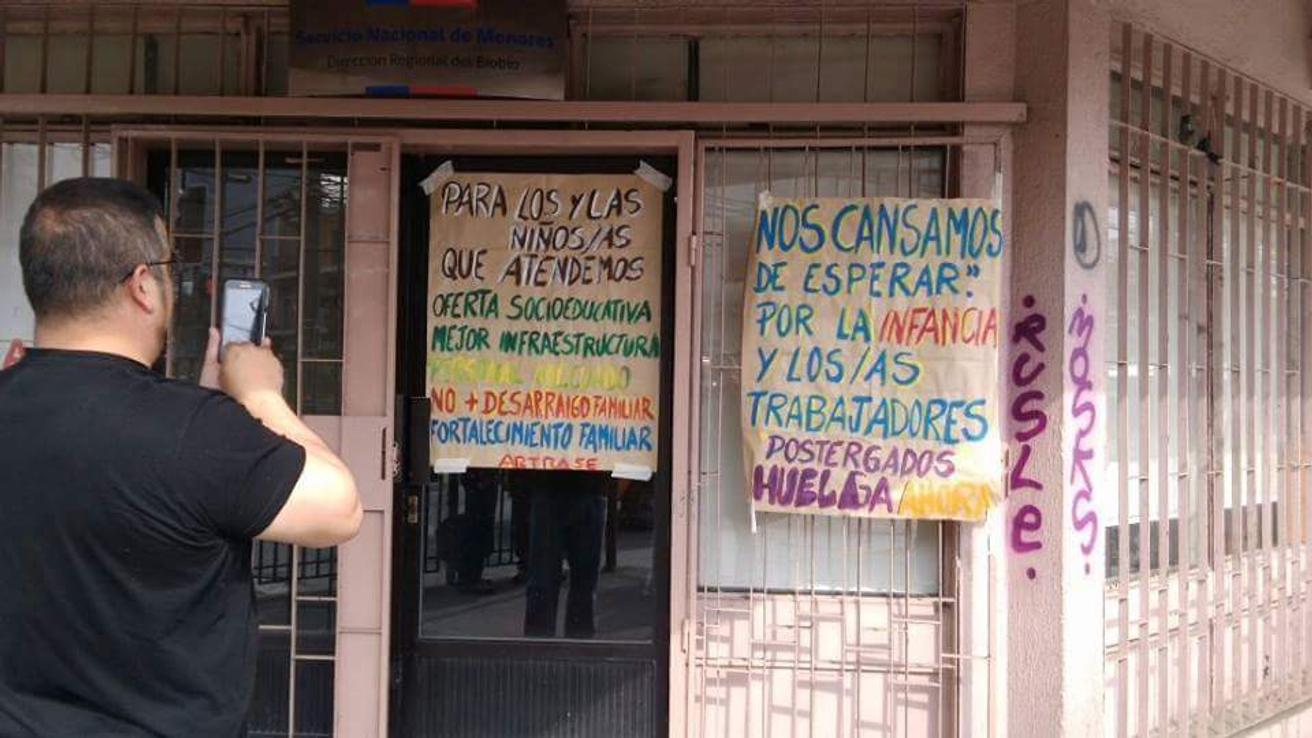 Servicio Nacional de Menores
Dirección Regional del Biobío
PARA LOS Y LAS
NIÑOS/AS
QUE ATENDEMOS
OFERTA SOCIOEDUCATIVA
MEJOR INFRAESTRUCTURA
PERSONAL ADECUADO
NO + DESARRAIGO FAMILIAR
FORTALECIMIENTO FAMILIAR
NOS CANSAMOS
DE ESPERAR."
POR LA INFANCIA
Y LOS/AS
TRABAJADORES
POSTERGADOS
HUELGA AHORA